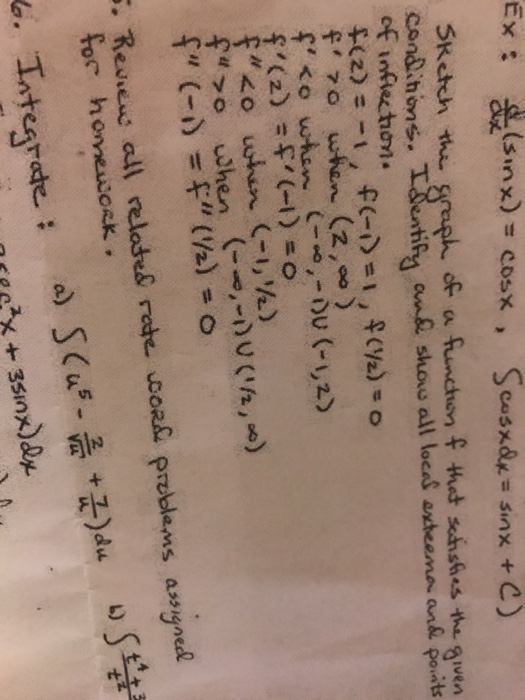 Ex: d/dx (sinx) = cosx, ∫cosxdx = sinx + C)
Sketch the graph of a function f that satisfies the given
conditions. Identify and show all local extrema and points
of inflection.
f(2) = -1, f(-1) = 1, f(1/2) = 0
f' > 0 when (2, ∞)
f' < 0 when (-∞, -1) ∪ (-1, 2)
f'(2) = f'(-1) = 0
f" < 0 when (-1, 1/2)
f" > 0 when (-∞, -1) ∪ (1/2, ∞)
f" (-1) = f" (1/2) = 0
Review all related rate word problems assigned
for homework.
6. Integrate:
a) ∫(u⁵ - 2/√u + 7/u) du b) ∫ t⁴ + 3
sec²x + 3sinx)dx